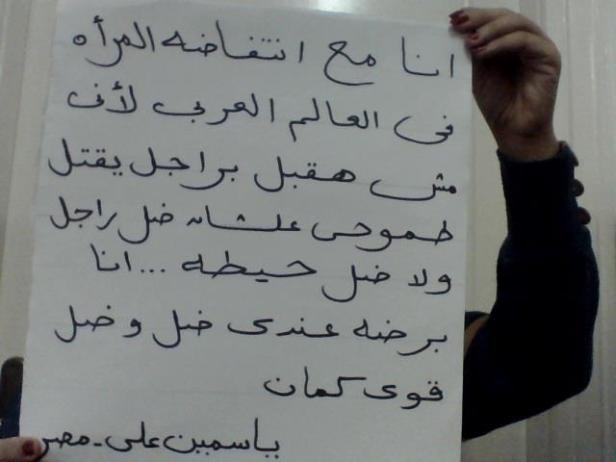 انا مع انتفاضه المرأه
فى العالم العربى لأنى
مش هقبل براجل يقتل
طموحى علشان ضل راجل
ولا ضل حيطه ... انا
برضه عندى ضل وضل
قوى كمان
ياسمين على - مصر